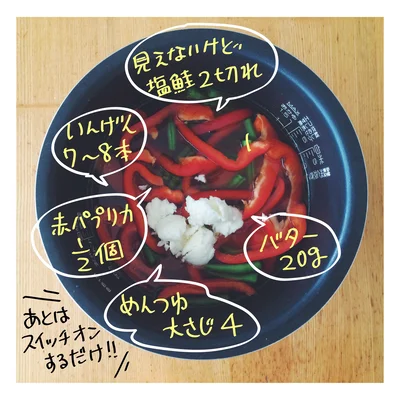 見えないけど
塩鮭2切れ
いんげん
7〜8本
赤パプリカ
1/2個
バター
20g
めんつゆ
大さじ4
あとは
スイッチオン
するだけ!!